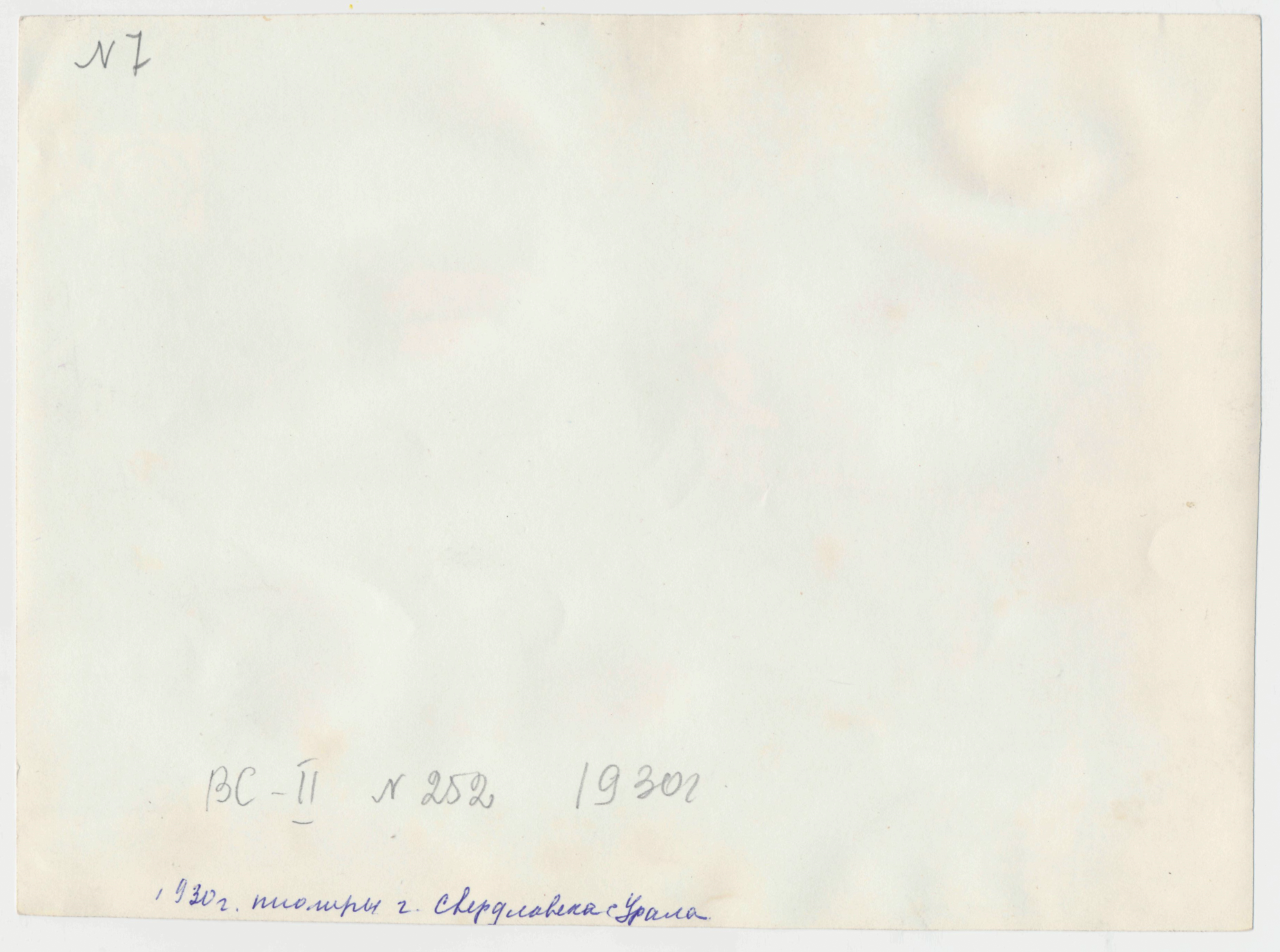 N 7
ВС-II N 252 1930г
1930г. пионеры г. Свердловска с Урала